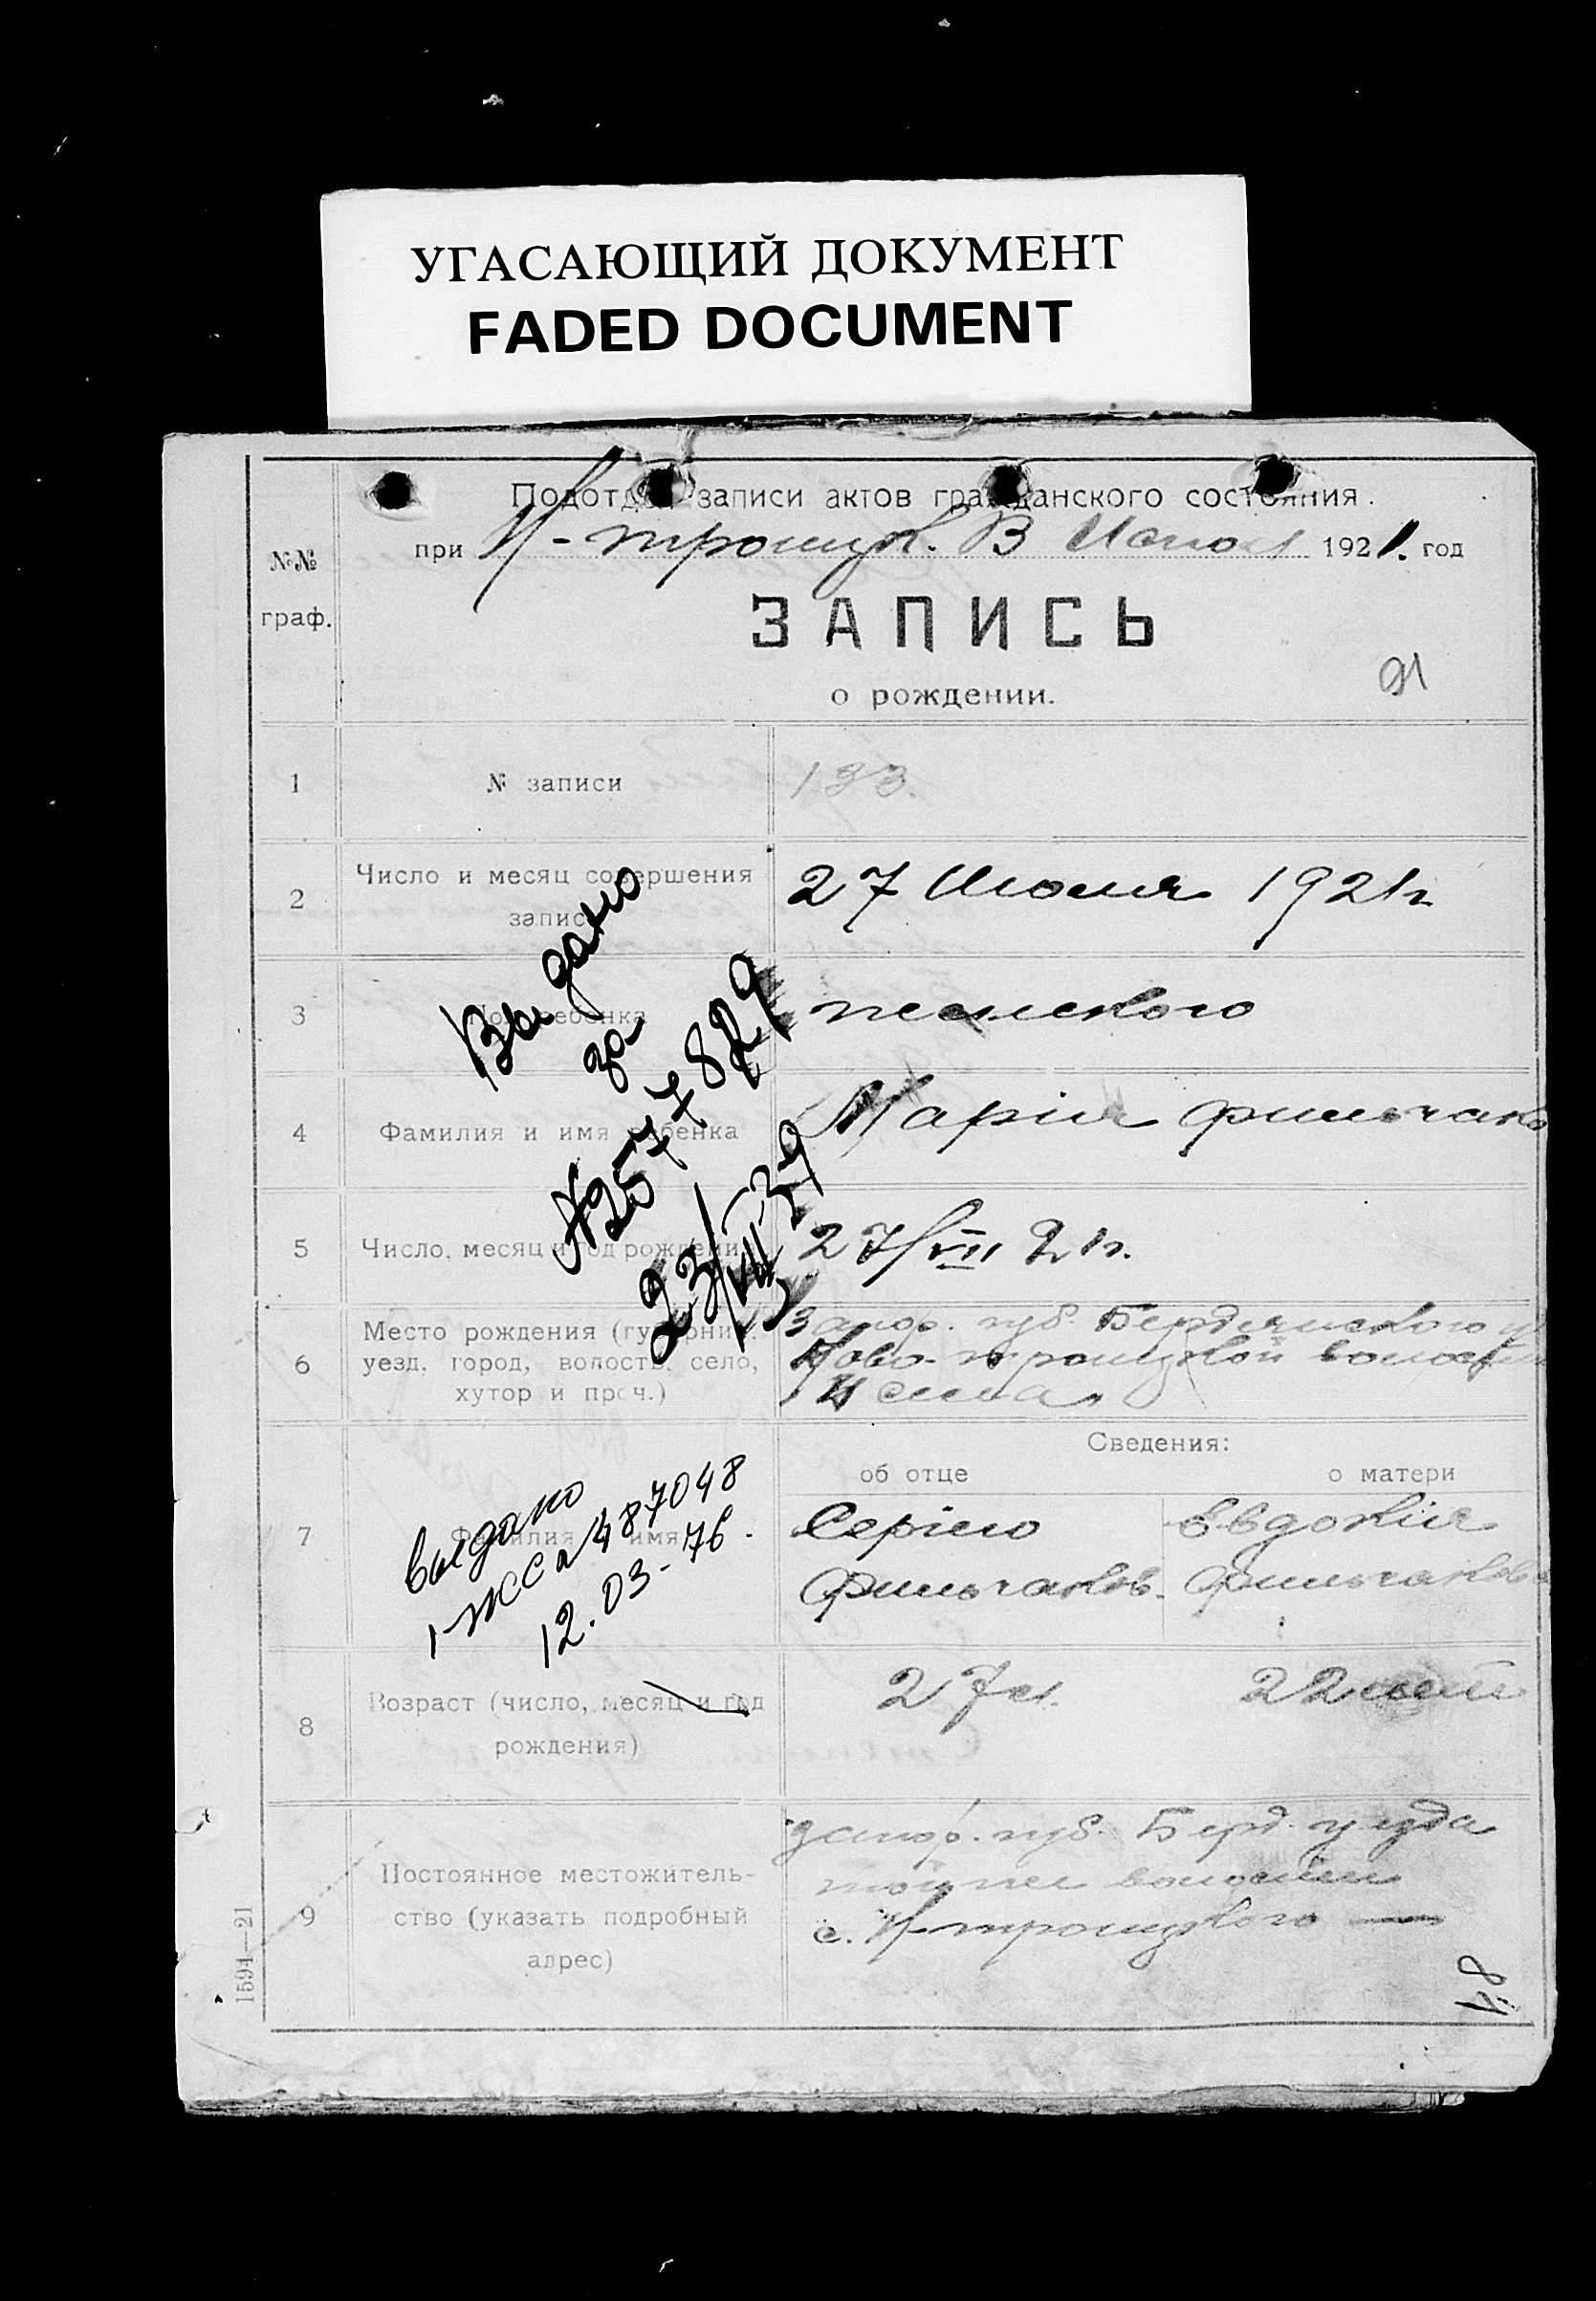 УГАСАЮЩИЙ ДОКУМЕНТ
FADED DOCUMENT
Подотдел записи актов гражданского состояния.
при Н-троицк. В Испол 1921. год
№№
граф.
ЗАПИСЬ
о рождении.
91
1 № записи 133.
2 Число и месяц совершения
записи
27 Июля 1921 г
3 Пол ребенка женского
4 Фамилия и имя ребенка Марія Фильчако
5 Число, месяц и год рождения 27/VII 21 г.
6 Место рождения (губерния,
уезд, город, волость, село,
хутор и проч.)
Запор. губ. Бердянского у
Ново-троицкой волости
Сведения:
об отце о матери
7 Фамилия и имя
Сергѣю Евдокія
Фильчаков. Фильчаков
8 Возраст (число, месяц и год
рождения)
27 л. 22
9 Постоянное местожитель-
ство (указать подробный
адрес)
Запор. губ. Берд. уезда
той же волости
с. Н-троицкого
Выдано
за
№ 2577829
23/VII-39
выдано
1-ЖС № 487048
12.03-76.
1591—21
48